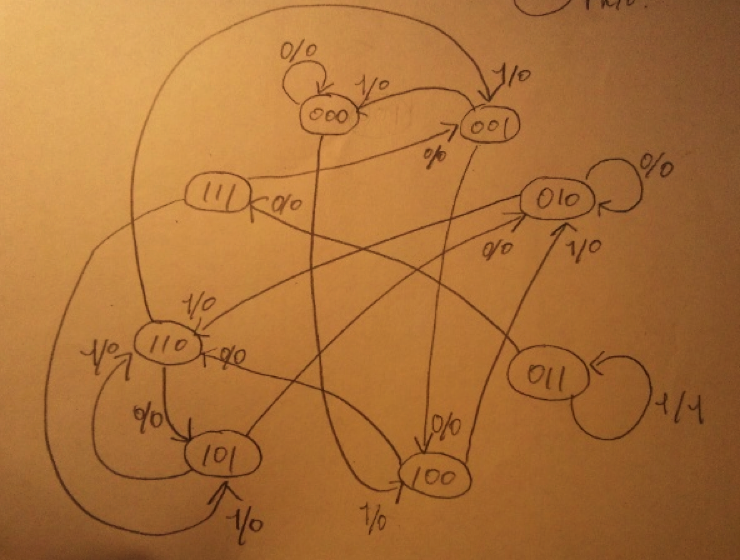 0/0
1/0
1/0
000
001
0/0
0/0
111
0/0
010
0/0
1/0
1/0
110
1/0
0/0
011
0/0
1/1
0/0
101
100
1/0
1/0